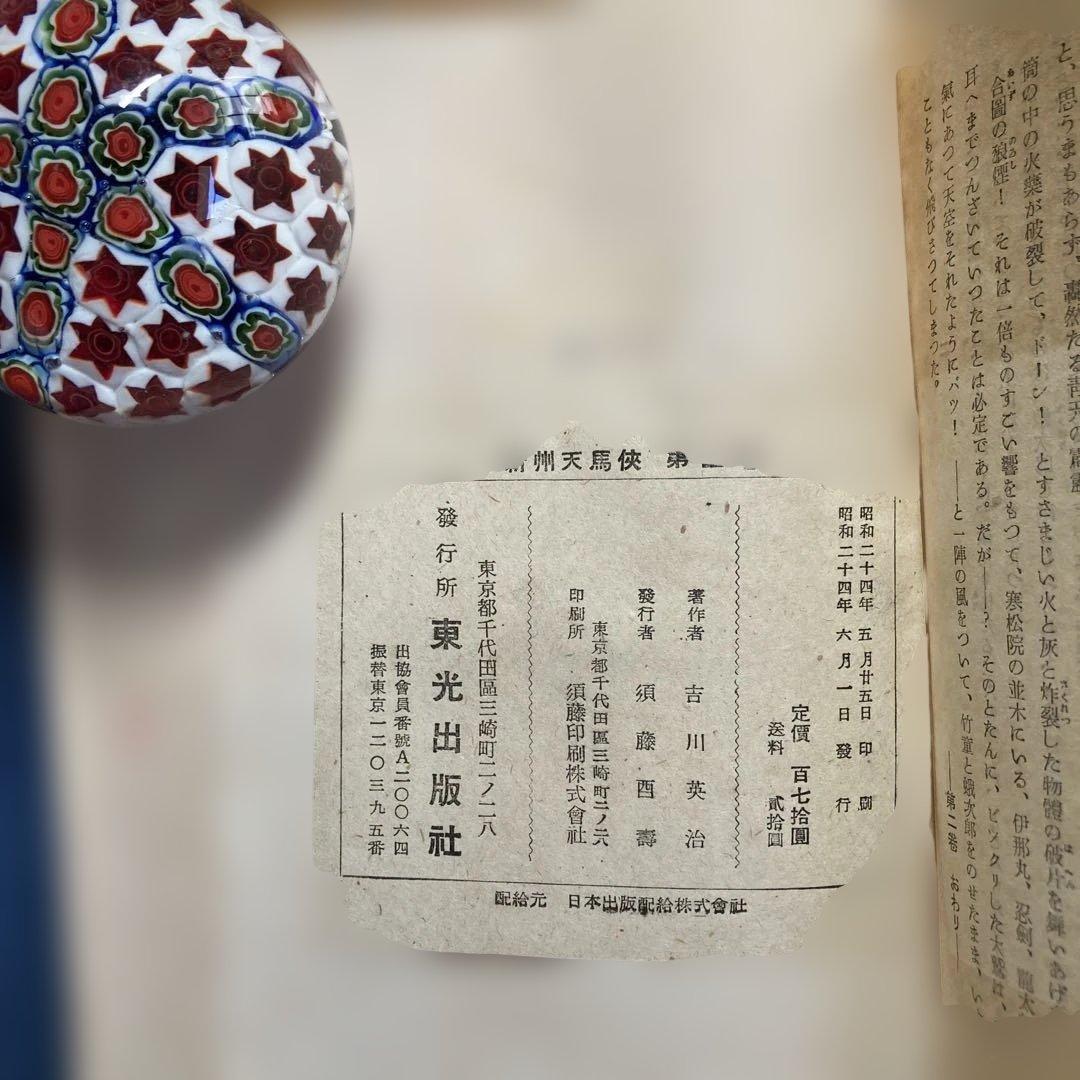 と、思うまもあらず、轟然たる青天の霹靂
筒の中の火藥が破裂して、ドーン！ とすさまじい火と灰と炸裂した物體の破片を舞いあげ
合圖の狼煙！ それは一倍ものすごい響をもつて、寒松院の並木にいる、伊那丸、忍劍、龍太
耳へまでつんざいていつたことは必定である。だが――？ そのとたんに、ビックリした大鷲は、
氣にあつて天空をそれたようにパッ！ ――と一陣の風をついて、竹童と蛾次郎をのせたまま、い
こともなく飛びさつてしまつた。
――第二卷 おわり――
州天馬俠 第
昭和二十四年 五月廿五日 印
昭和二十四年 六月一日 發行
定價 百七拾圓
送料 貳拾圓
著作者 吉川英治
發行者 須藤酉壽
東京都千代田區三崎町二ノ六
印刷所 須藤印刷株式會社
東京都千代田區三崎町二ノ二八
發行所 東光出版社
出協會員番號A二〇〇六四
振替東京一二〇三九五番
配給元 日本出版配給株式會社